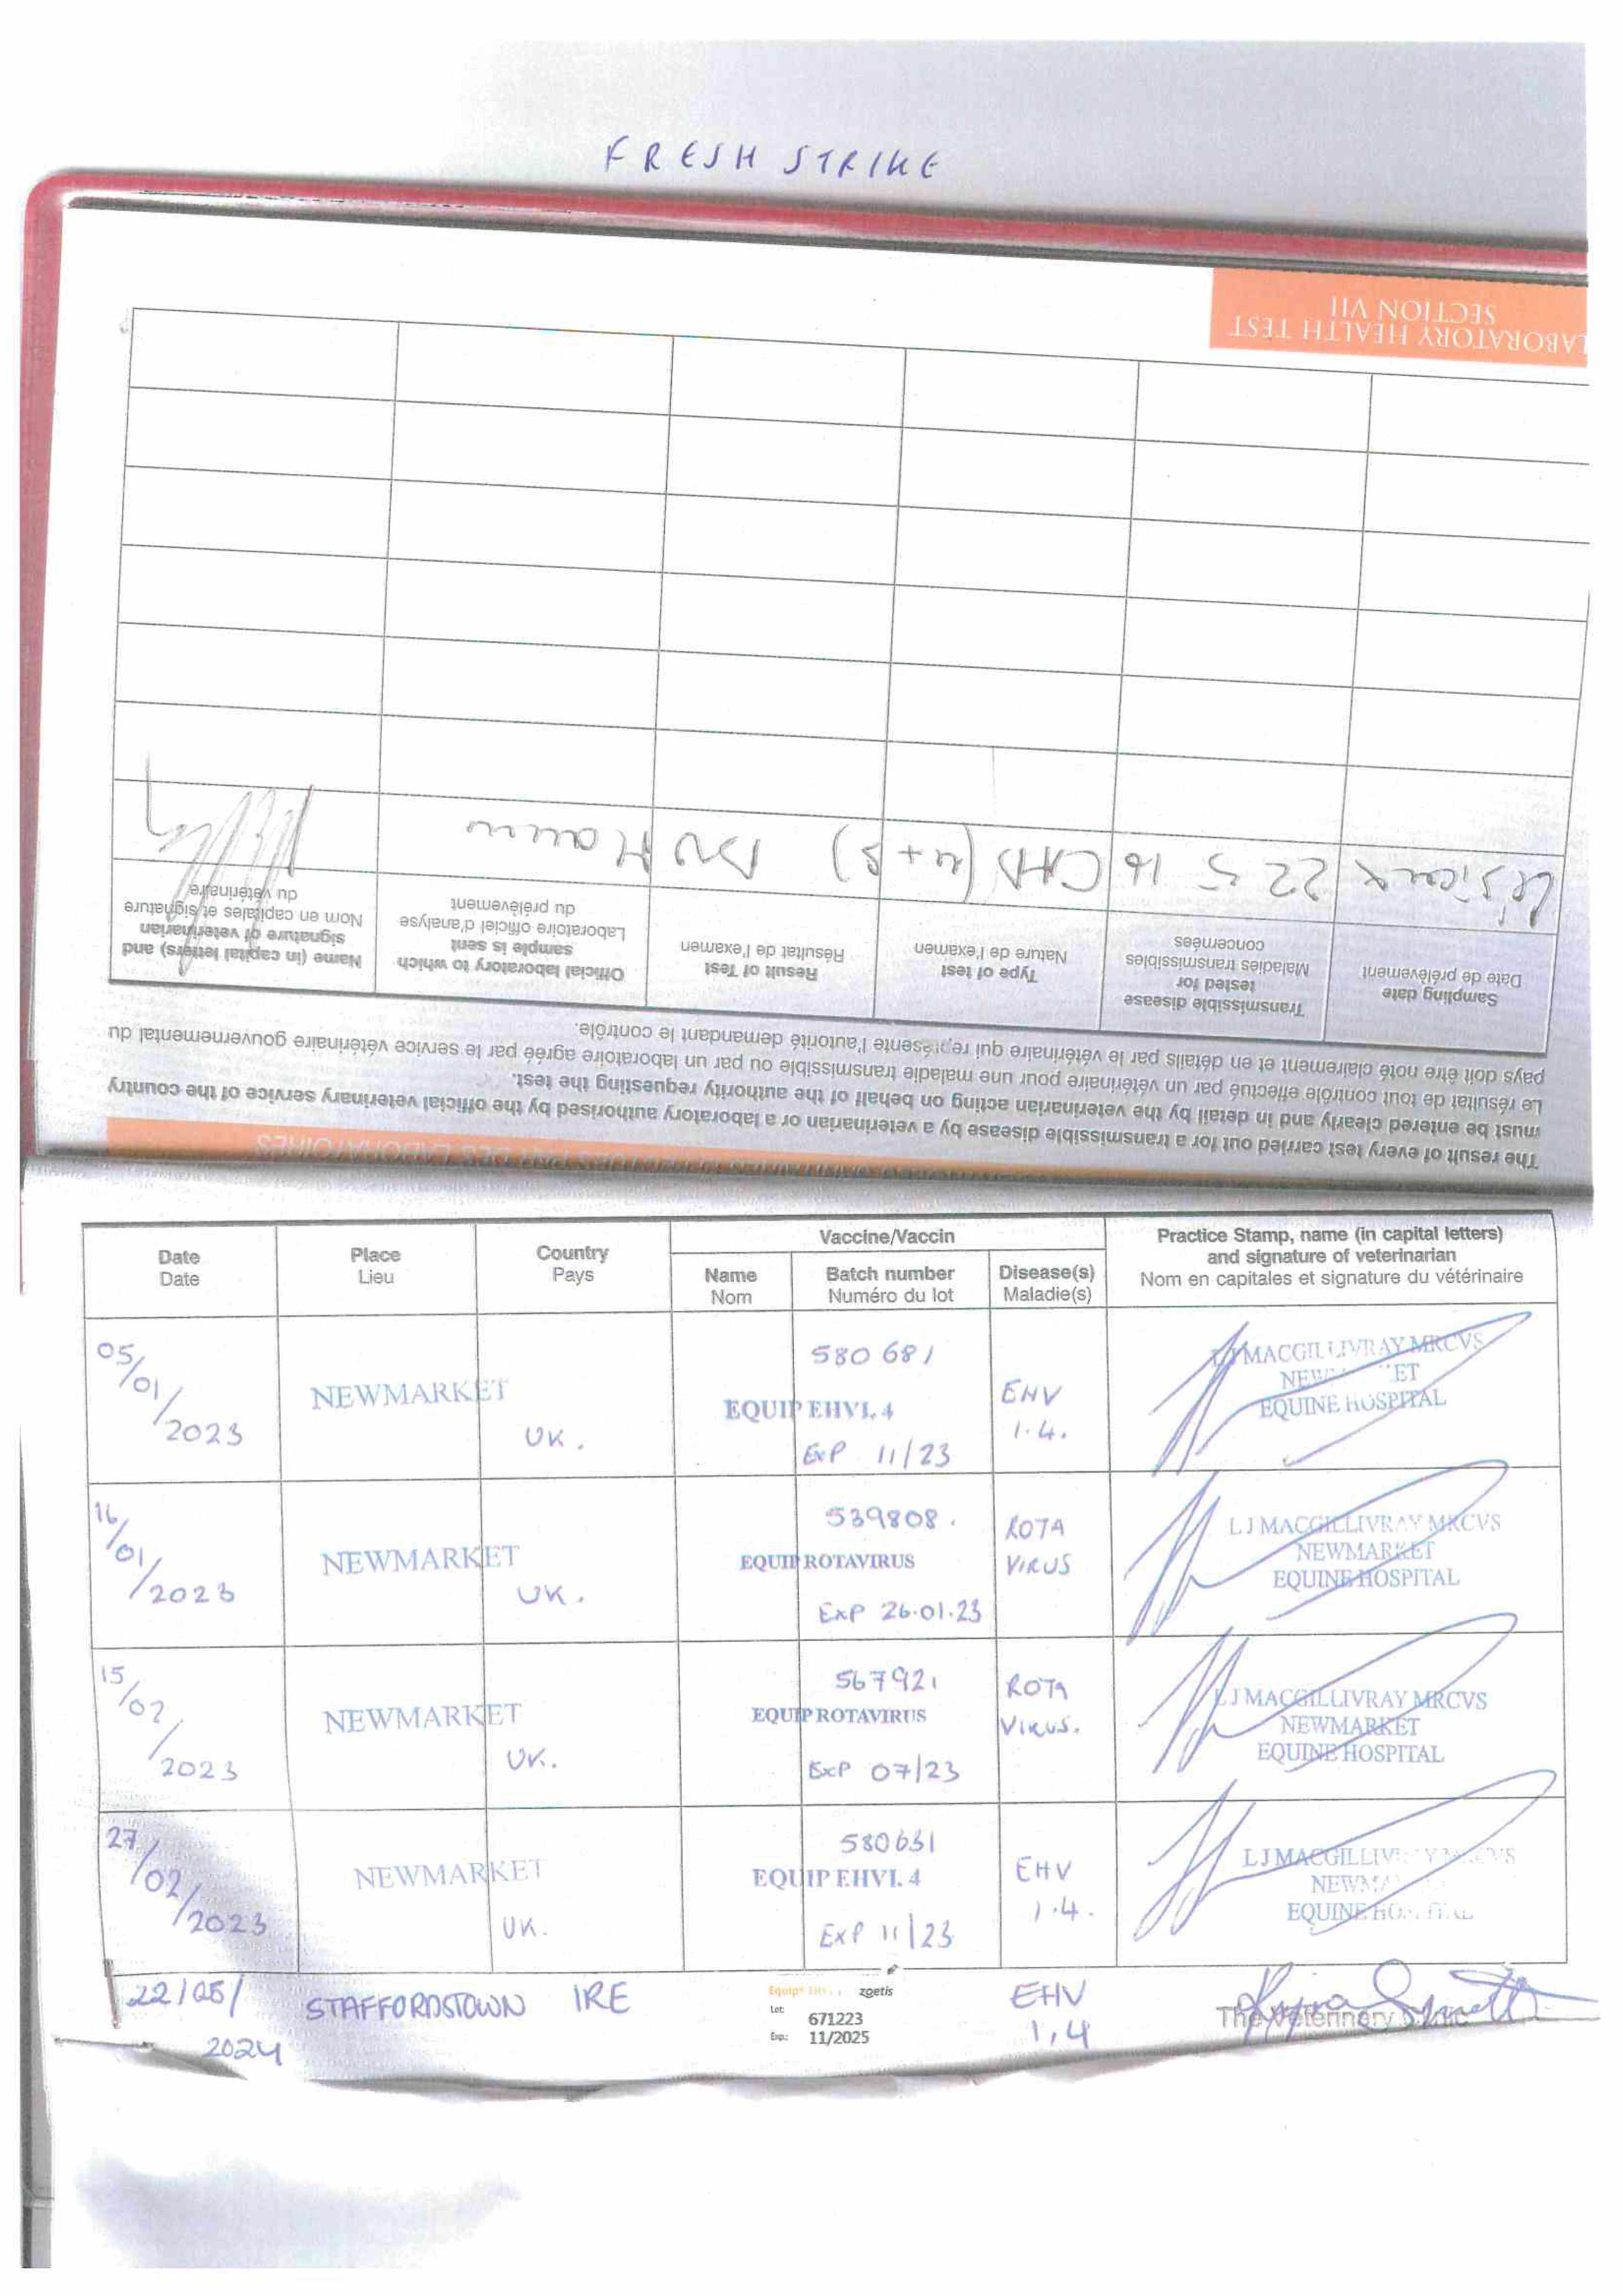 FRESH STRIKE
LABORATORY HEALTH TEST
SECTION VII
The result of every test carried out for a transmissible disease by a veterinarian or a laboratory authorised by the official veterinary service of the country
must be entered clearly and in detail by the veterinarian acting on behalf of the authority requesting the test.
Le résultat de tout contrôle effectué par un vétérinaire pour une maladie transmissible ou par un laboratoire agréé par le service vétérinaire gouvernemental du
pays doit être noté clairement et en détails par le vétérinaire qui représente l'autorité demandant le contrôle.
Sampling date
Date de prélèvement
Transmissible disease
tested for
Maladies transmissibles
concernées
Type of test
Nature de l'examen
Result of Test
Résultat de l'examen
Official laboratory to which
sample is sent
Laboratoire officiel d'analyse
du prélèvement
Name (in capital letters) and
signature of veterinarian
Nom en capitales et signature
du vétérinaire
22 5 16
Date
Date
Place
Lieu
Country
Pays
Vaccine/Vaccin
Name
Nom
Batch number
Numéro du lot
Disease(s)
Maladie(s)
Practice Stamp, name (in capital letters)
and signature of veterinarian
Nom en capitales et signature du vétérinaire
05/01/2023
NEWMARKET
UK.
580681
EQUIP EHV1,4
EXP 11/23
EHV
1.4.
MACGILLIVRAY MRCVS
EQUINE HOSPITAL
16/01/2023
NEWMARKET
UK.
539808.
EQUIP ROTAVIRUS
EXP 26.01.23
ROTA
VIRUS
L J MACGILLIVRAY MRCVS
NEWMARKET
EQUINE HOSPITAL
15/02/2023
NEWMARKET
UK.
567921
EQUIP ROTAVIRUS
EXP 07/23
ROTA
VIRUS.
L J MACGILLIVRAY MRCVS
NEWMARKET
EQUINE HOSPITAL
27/02/2023
NEWMARKET
UK.
580631
EQUIP EHV1,4
EXP 11/23
EHV
1.4.
L J
EQUINE
2024
STAFFORDSTOWN
IRE
Equip zoetis
Lot:
671223
Exp.: 11/2025
EHV
1,4
The Veterinary